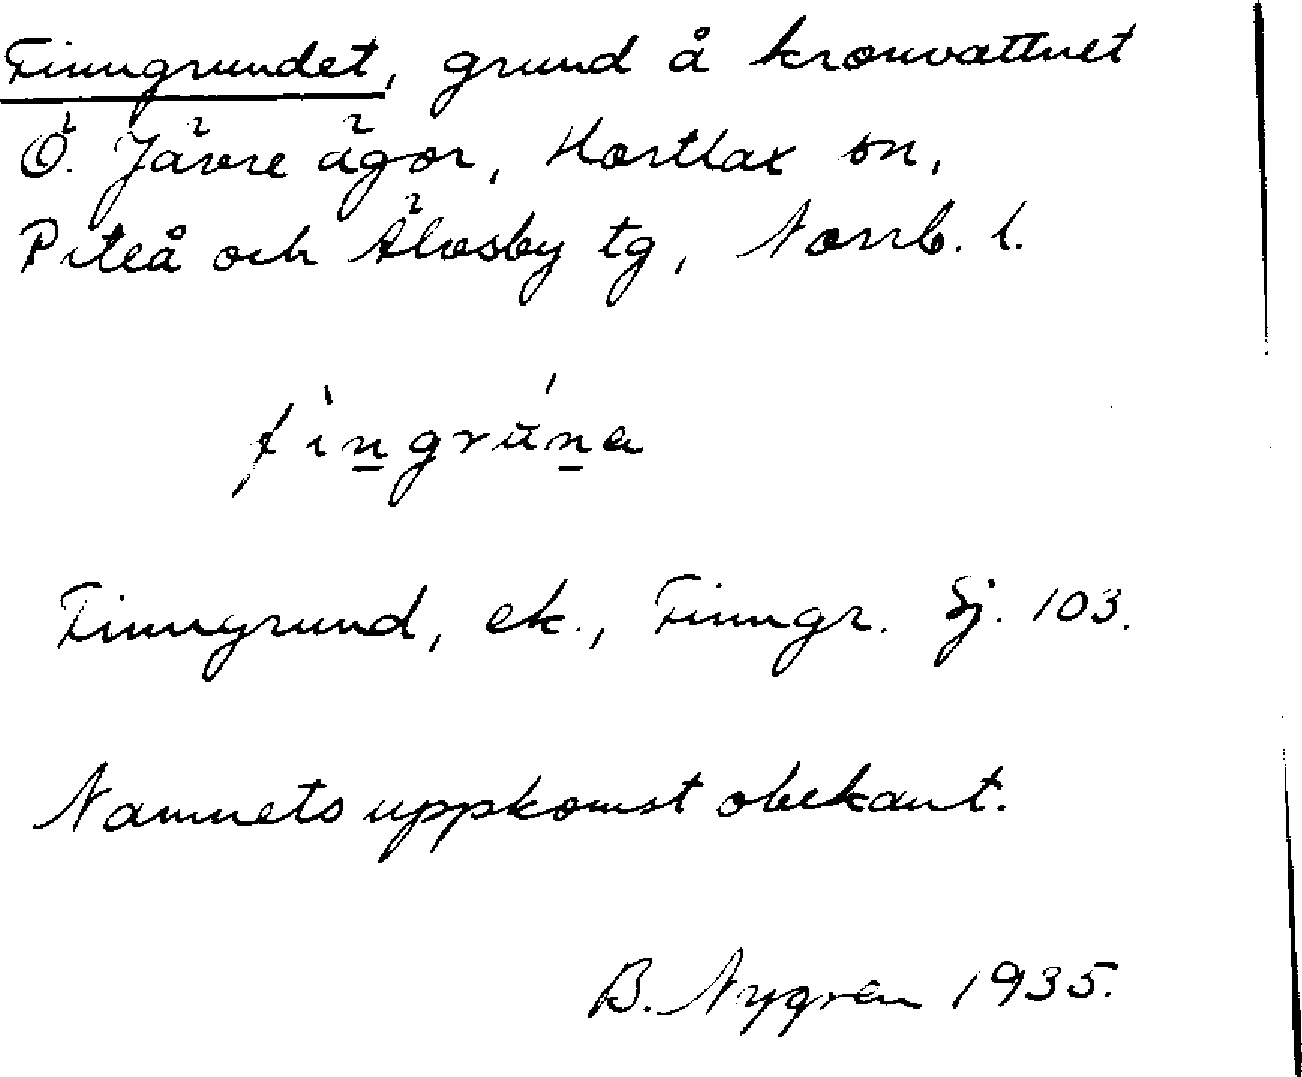 Finngrundet, grund å kronvattnet
Ö. Jävre ägor, Hortlax sn,
Piteå och Älvsby tg, Norrb. l.
fìn̲grún̲a
Finngrund, ek., Finngr. Sj. 103.
Namnets uppkomst obekant.
B. Nygren 1935.